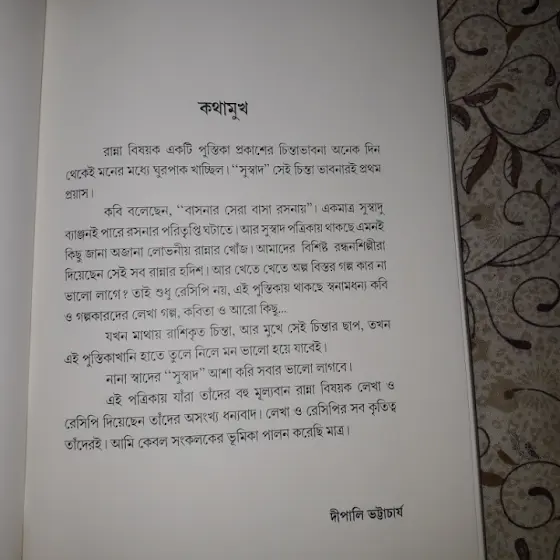 কথামুখ
রান্না বিষয়ক একটি পুস্তিকা প্রকাশের চিন্তাভাবনা অনেক দিন
থেকেই মনের মধ্যে ঘুরপাক খাচ্ছিল। “সুস্বাদ” সেই চিন্তা ভাবনারই প্রথম
প্রয়াস।
কবি বলেছেন, “বাসনার সেরা বাসা রসনায়”। একমাত্র সুস্বাদু
ব্যাঞ্জনই পারে রসনার পরিতৃপ্তি ঘটাতে। আর সুস্বাদ পত্রিকায় থাকছে এমনই
কিছু জানা অজানা লোভনীয় রান্নার খোঁজ। আমাদের বিশিষ্ট রন্ধনশিল্পীরা
দিয়েছেন সেই সব রান্নার হদিশ। আর খেতে খেতে অল্প বিস্তর গল্প কার না
ভালো লাগে? তাই শুধু রেসিপি নয়, এই পুস্তিকায় থাকছে স্বনামধন্য কবি
ও গল্পকারদের লেখা গল্প, কবিতা ও আরো কিছু...
যখন মাথায় রাশিকৃত চিন্তা, আর মুখে সেই চিন্তার ছাপ, তখন
এই পুস্তিকাখানি হাতে তুলে নিলে মন ভালো হয়ে যাবেই।
নানা স্বাদের “সুস্বাদ” আশা করি সবার ভালো লাগবে।
এই পত্রিকায় যাঁরা তাঁদের বহু মূল্যবান রান্না বিষয়ক লেখা ও
রেসিপি দিয়েছেন তাঁদের অসংখ্য ধন্যবাদ। লেখা ও রেসিপির সব কৃতিত্ব
তাঁদেরই। আমি কেবল সংকলকের ভূমিকা পালন করেছি মাত্র।
দীপালি ভট্টাচার্য